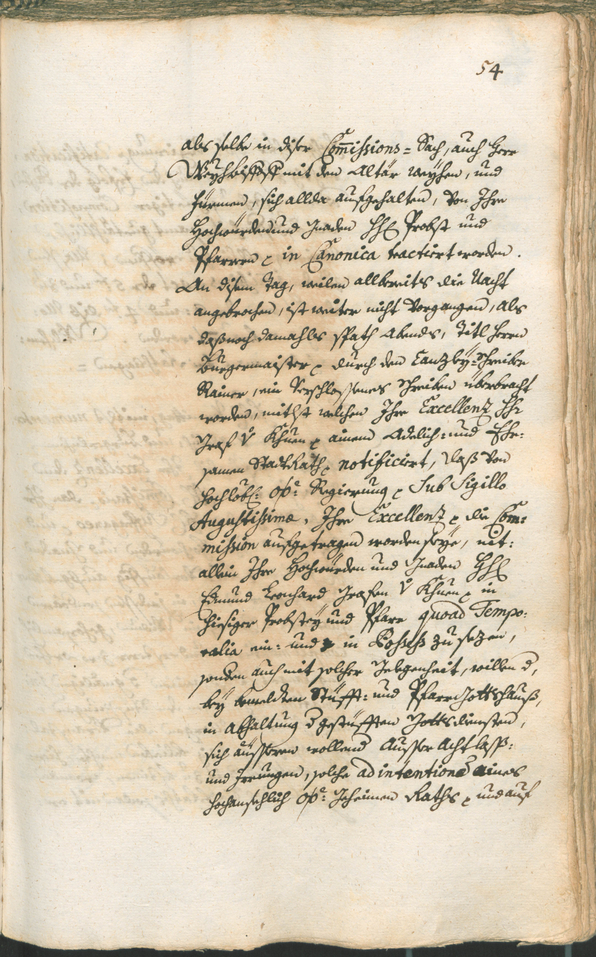 54
als selbe in diser Com̄issions = Sach, auch Herr
Weychbischoff mit den Altär weychen, und
Fürmen, sich allda aufgehalten, von Ihro
Hochwürden und Gnaden H Probst und
Pfarrern in Canonica tractiert worden.
An disem Tag, weilen allbereits die Nacht
angebrochen, ist weiter nicht vorgangen, als
daß noch damahls spath abends, Titl Herrn
Burgermaister durch den Canzley-Schreiber
Rainer, ein verschlossenes Schreiben überbracht
worden, mitlst welchen Ihro Excellenz H
Graf v Khuen einem Adelich: und Ehr=
samen Stadt Rath notificiert, daß von
Hochlobl: OÖ: Regierung Sub Sigillo
Augustissimæ, Ihro Excellenz die Com=
mission aufgetragen worden seye, nit:
allein Ihro Hochwürden und Gnaden H
Edmund Leonhard Grafen v Khuen in
hiesiger Probstey und Pfarr quoad Tempo=
ralia ein: und in Possess zu sezen,
sonden auch mit solcher Gelegenheit, willen d,
bey bemeldten Stüfft: und Pfarrgottshauß,
in Abhaltung d gestüfften Gottsdiensten,
sich äusseren wollend Ausser acht lass:
und Irrungen, solche ad intentionem aines
Hochansehlich OÖ: Geheimen Raths und auf